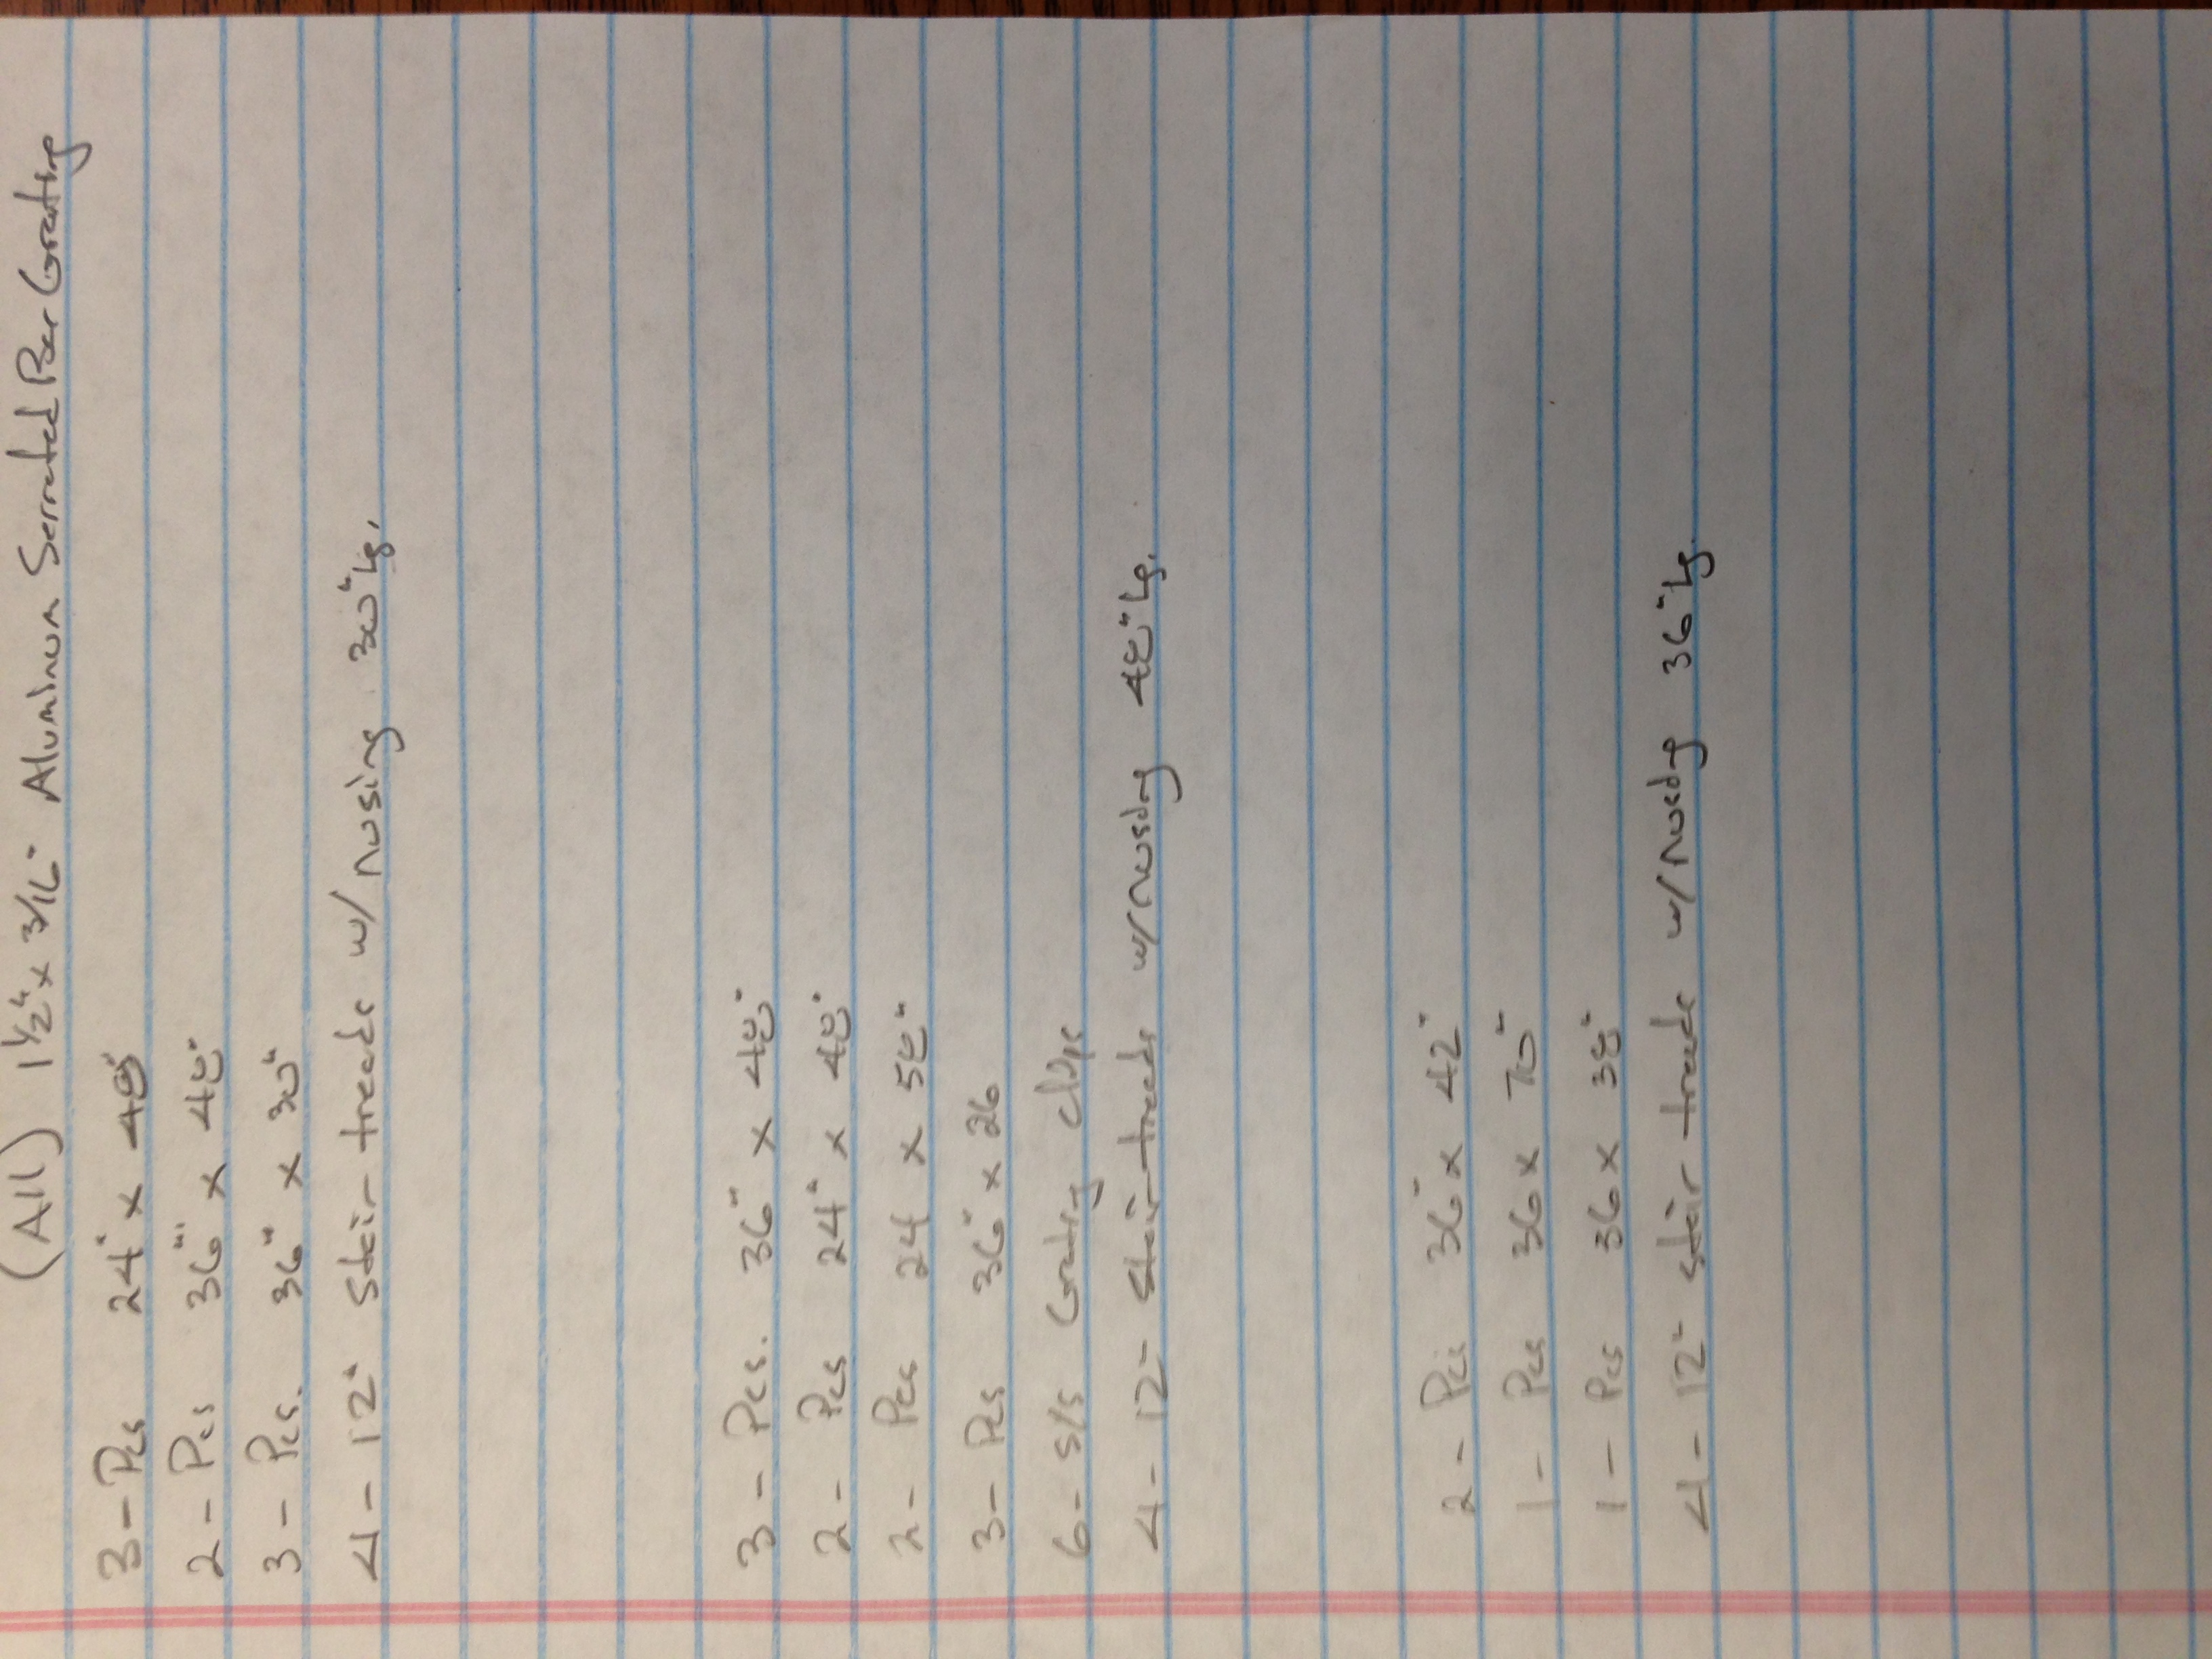 (All) 1 1/2" x 3/16" Aluminum Serrated Bar Grating
3 - Pcs 24" x 48"
2 - Pcs 36" x 48"
3 - Pcs. 36" x 30"
4 - 12" stair treads w/ nosing 30" Lg.
3 - Pcs. 36" x 48"
2 - Pcs 24" x 48"
2 - Pcs 24 x 58"
3 - Pcs 36" x 26
6 - S/S Grating clips
4 - 12" stair treads w/ nosing 48" Lg.
2 - Pcs 36" x 42"
1 - Pcs 36 x 70"
1 - Pcs 36 x 38"
4 - 12" stair treads w/ nosing 36" Lg.